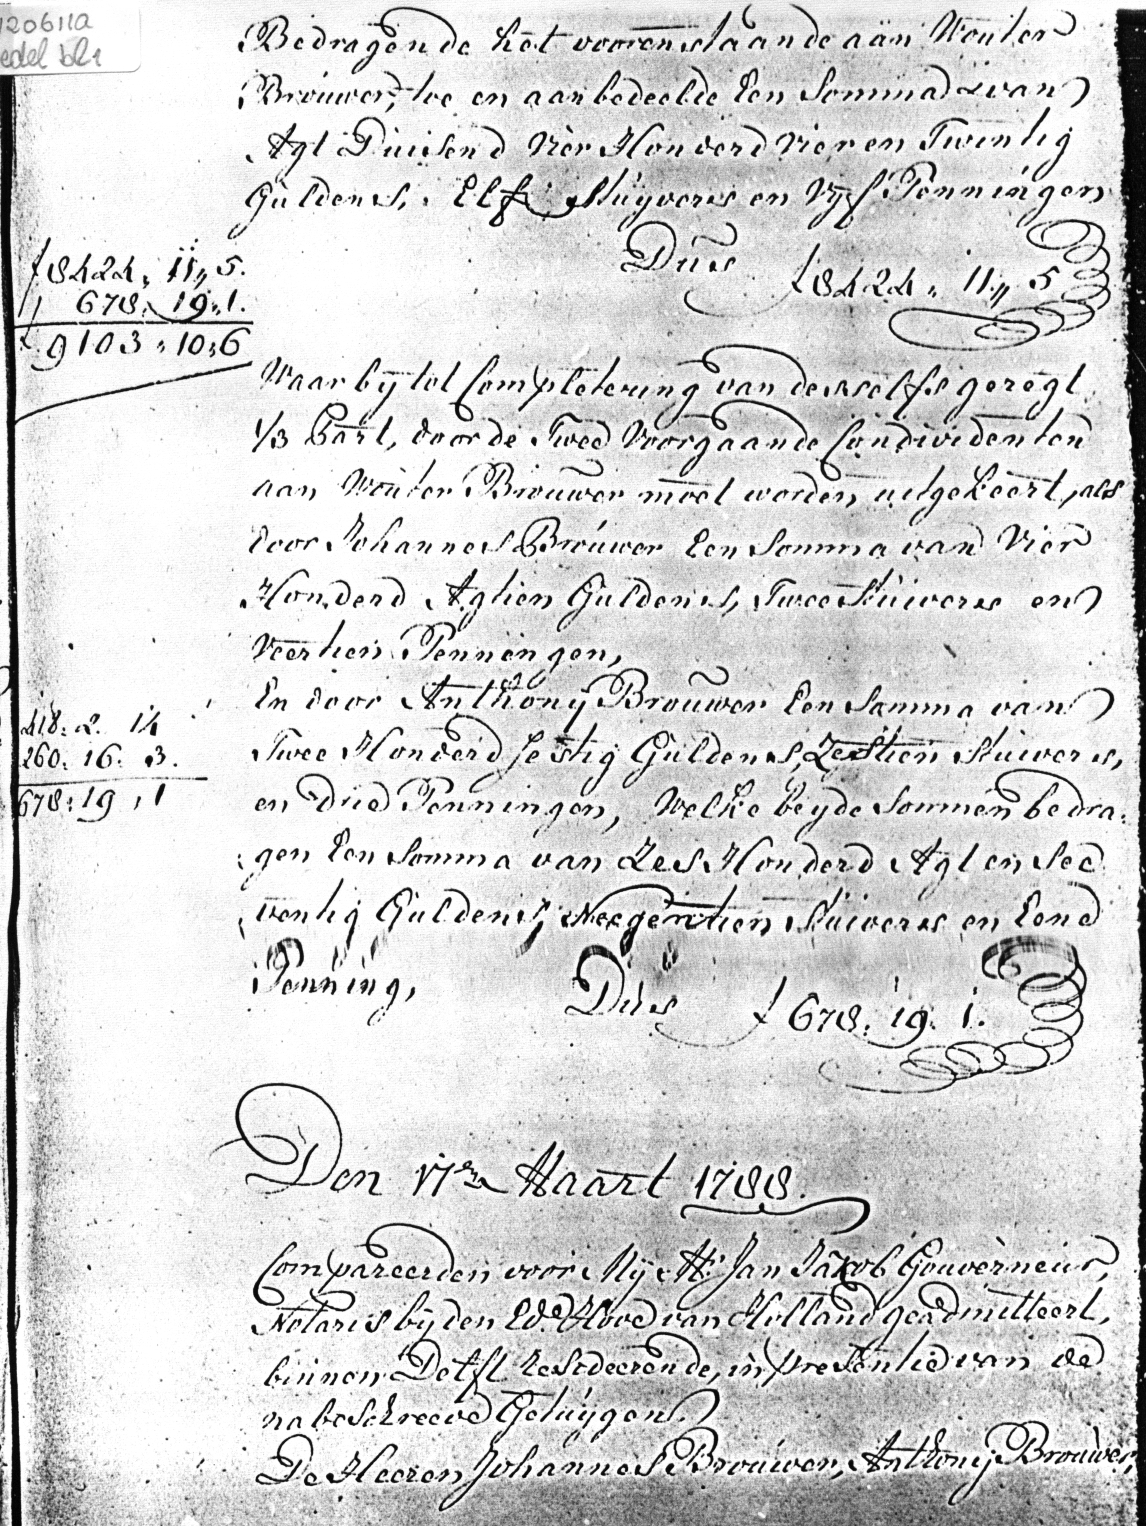 120611a
edel bl1
Bedragende het voorenstaande aan Wouter
Brouwer, toe en aanbedeelde Een Somma van
Agt Duisend Vier Honderd Vier en Twintig
Guldens, Elf Stuyvers en Vyf Penningen
Dus ƒ 8424,, 11,, 5
ƒ 8424,, 11,, 5.
678,, 19,, 1.
ƒ 9103,, 10,, 6
Waar bij tot Completering van desselfs geregt
1/3 Part, door de Twee Voorgaande Condividenten
aan Wouter Brouwer moet worden uitgekeert, als
door Johannes Brouwer Een Somma van Vier
Honderd Agtien Guldens, Twee Stuivers en
Veertien Penningen,
En door Anthonij Brouwer Een Somma van
418. 2. 14
260. 16. 3.
678. 19. 1
Twee Honderd Sestig Guldens, Zestien Stuivers,
en Drie Penningen, Welke beyde Sommen bedra-
gen Een Somma van Zes Honderd Agt en See
ventig Guldens, Neegentien Stuivers en Eene
Penning,
Dus ƒ 678. 19. 1.
Den 17en Maart 1788.
Compareerden voor Mij Mr. Jan Jakob Gouverneur,
Notaris bij den Ed. Hove van Holland geadmitteert,
binnen Delft resideerende, in presentie van de
nabeschreeve Getuygen.
De Heeren Johannes Brouwer, Anthonij Brouwer,